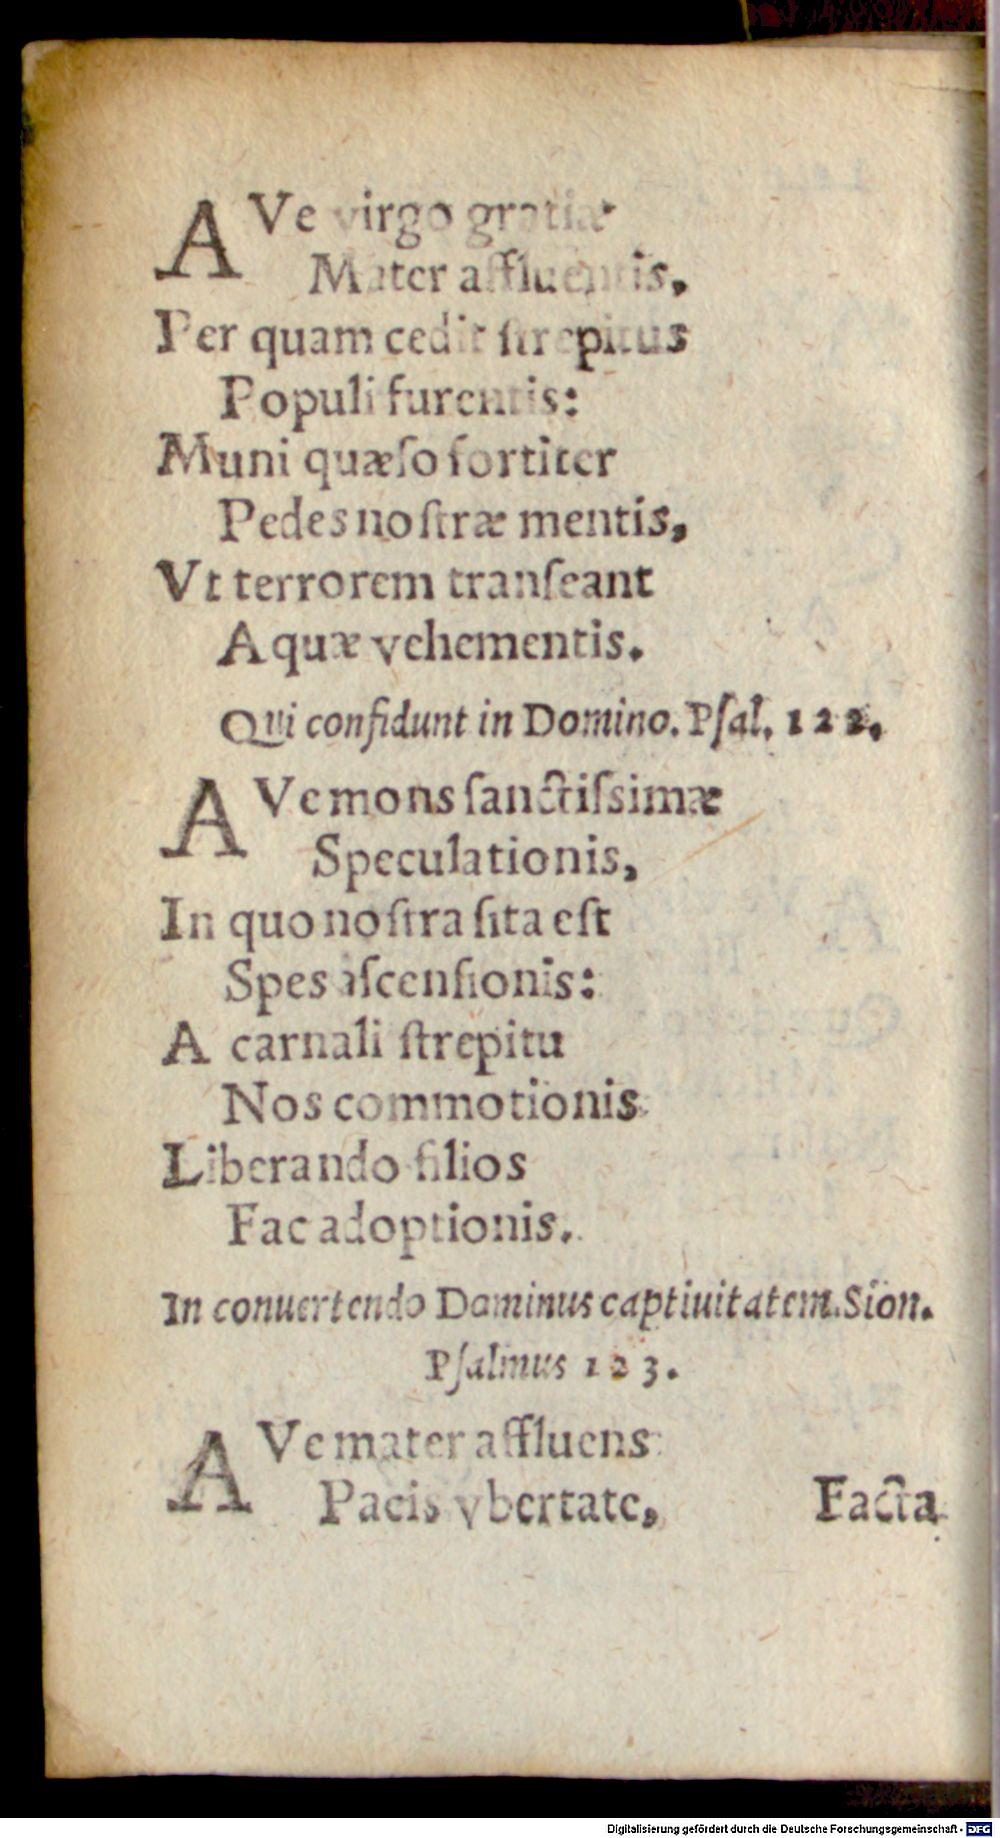 AVe virgo gratiæ
Mater affluentis,
Per quam cedit ſtrepitus
Populi furentis:
Muni quæſo fortiter
Pedes noſtræ mentis,
Vt terrorem tranſeant
Aquæ vehementis.
Qui confidunt in Domino. Pſal. 122.
AVe mons ſanctiſsimæ
Speculationis,
In quo noſtra ſita eſt
Spes aſcenſionis:
A carnali ſtrepitu
Nos commotionis
Liberando filios
Fac adoptionis.
In conuertendo Dominus captiuitatem. Sion.
Pſalmus 123.
AVe mater affluens
Pacis vbertate,
Facta
Digitalisierung gefördert durch die Deutsche Forschungsgemeinschaft - DFG